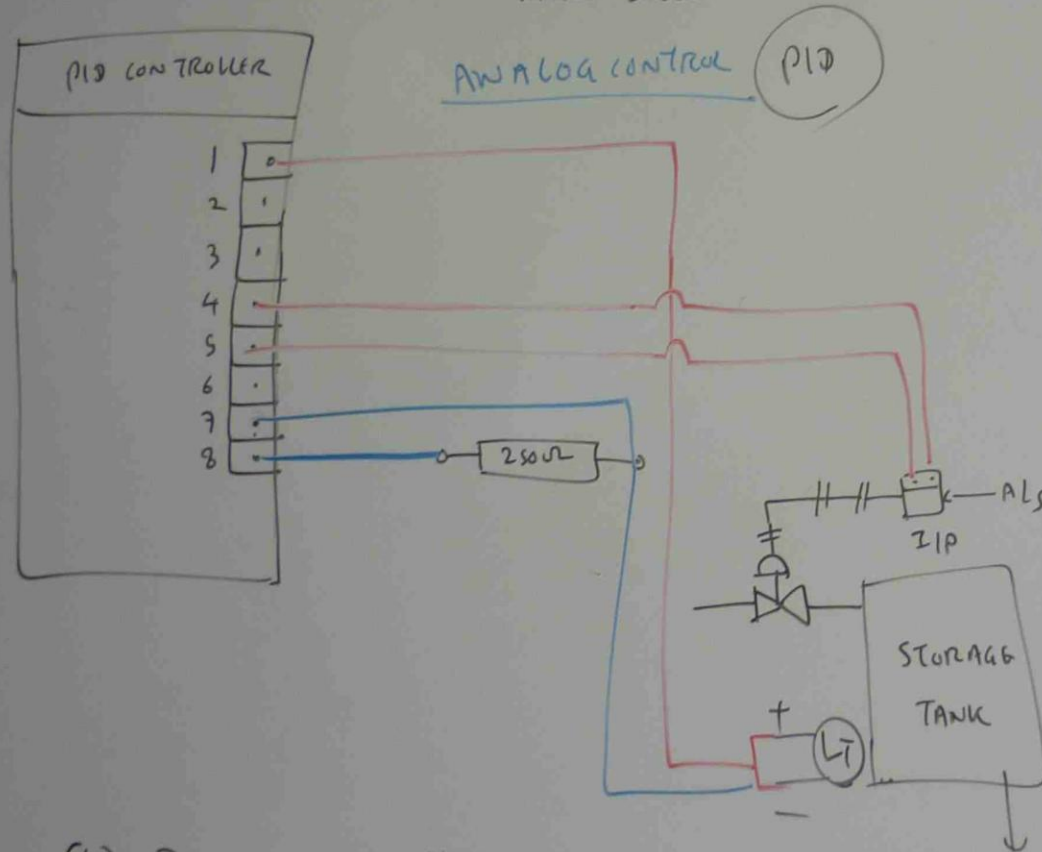 PID CONTROLLER
ANALOG CONTROL
PID
1
2
3
4
5
6
7
8
250Ω
I/P
STORAGE
TANK
+
LT
-